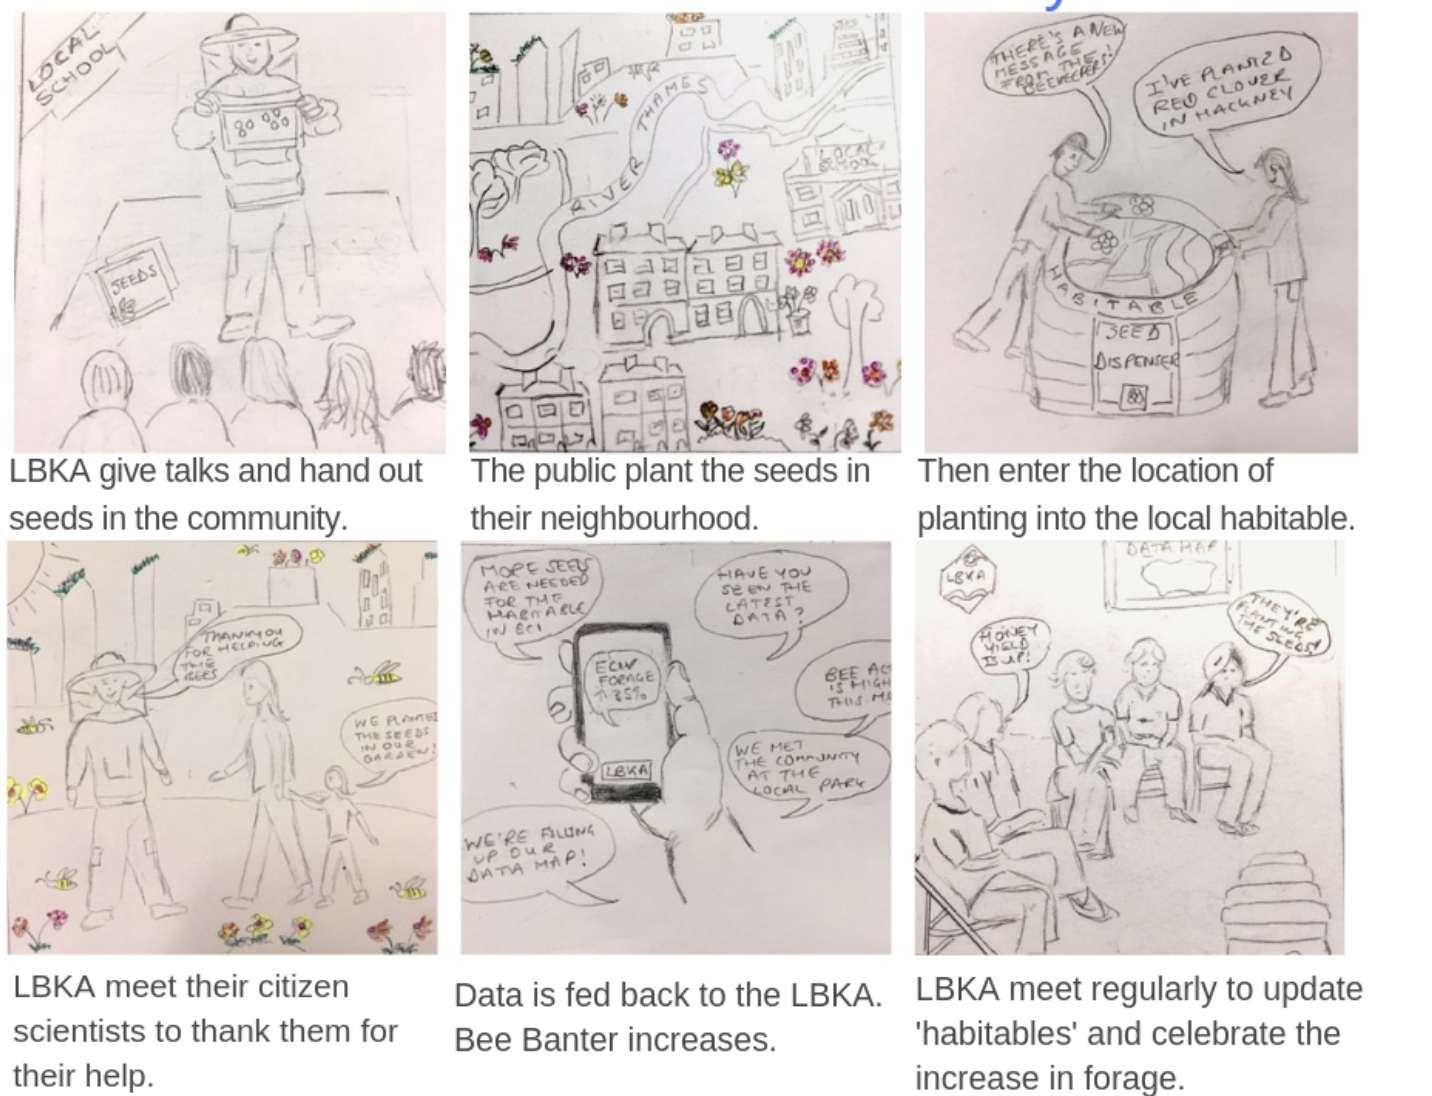 LOCAL
SCHOOL
SEEDS
LBKA give talks and hand out
seeds in the community.
RIVER THAMES
LOCAL
SCHOOL
The public plant the seeds in
their neighbourhood.
THERE'S A NEW
MESSAGE
FROM THE
BEEKEEPERS!
I'VE PLANTED
RED CLOVER
IN HACKNEY
HABITABLE
SEED
DISPENSER
Then enter the location of
planting into the local habitable.
THANKYOU
FOR HELPING
THE
BEES
WE PLANTED
THE SEEDS
IN OUR
GARDEN!
LBKA meet their citizen
scientists to thank them for
their help.
MORE SEEDS
ARE NEEDED
FOR THE
HABITABLE
IN EC1
HAVE YOU
SEEN THE
LATEST
DATA?
FORAGE
35%
LBKA
BEE
IS HIGH
THIS
WE MET
THE COMMUNITY
AT THE
LOCAL PARK
WE'RE FILLING
UP OUR
DATA MAP!
Data is fed back to the LBKA.
Bee Banter increases.
LBKA
DATA MAP
HONEY
YIELD
IS UP!
THEY'RE
PLANTING
THE SEEDS!
LBKA meet regularly to update
'habitables' and celebrate the
increase in forage.